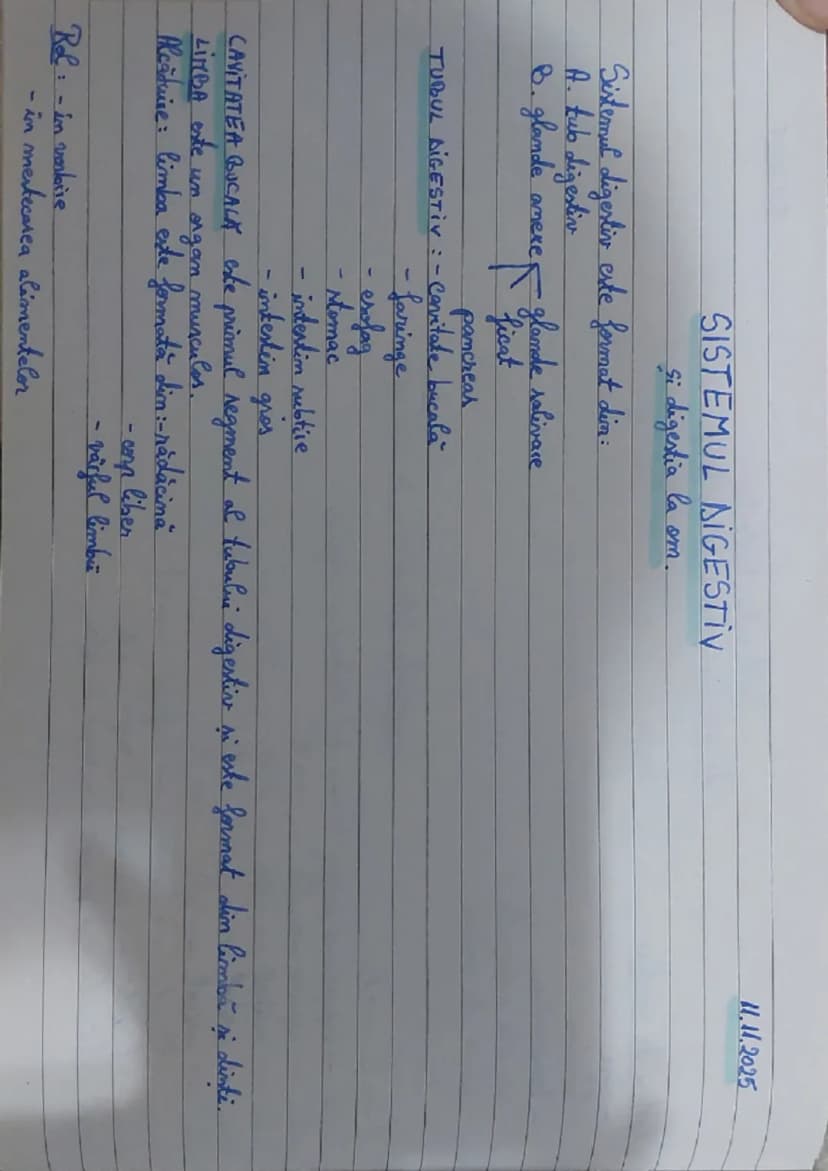 11.11.2025
SISTEMUL DIGESTIV
și digestia la om.
Sistemul digestiv este format din:
A. tub digestiv
B. glande anexe glande salivare
ficat
pancreas
TUBUL DIGESTIV : - cavitate bucală
- faringe
- esofag
- stomac
- intestin subtire
- intestin gros
CAVITATEA BUCALĂ este primul segment al tubului digestiv și este format din limbă și dinți.
LIMBA este un organ musculos.
Alcătuire: limba este formată din: - rădăcină
- corp liber
- vârful limbii
Rol : - în vorbire
- în mestecarea alimentelor